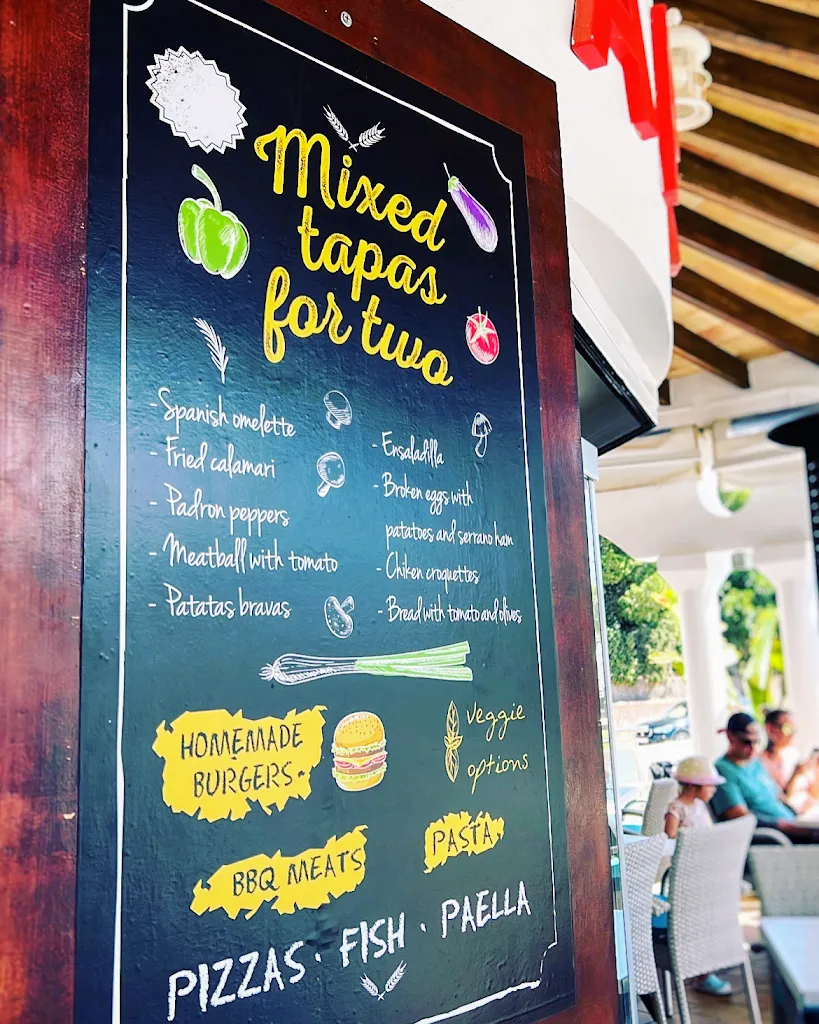 Mixed
tapas
for two
- Spanish omelette
- Fried calamari
- Padron peppers
- Meatball with tomato
- Patatas bravas
- Ensaladilla
- Broken eggs with
patatoes and serrano ham
- Chiken croquettes
- Bread with tomato and olives
HOMEMADE
BURGERS
veggie
options
BBQ MEATS
PASTA
PIZZAS · FISH · PAELLA